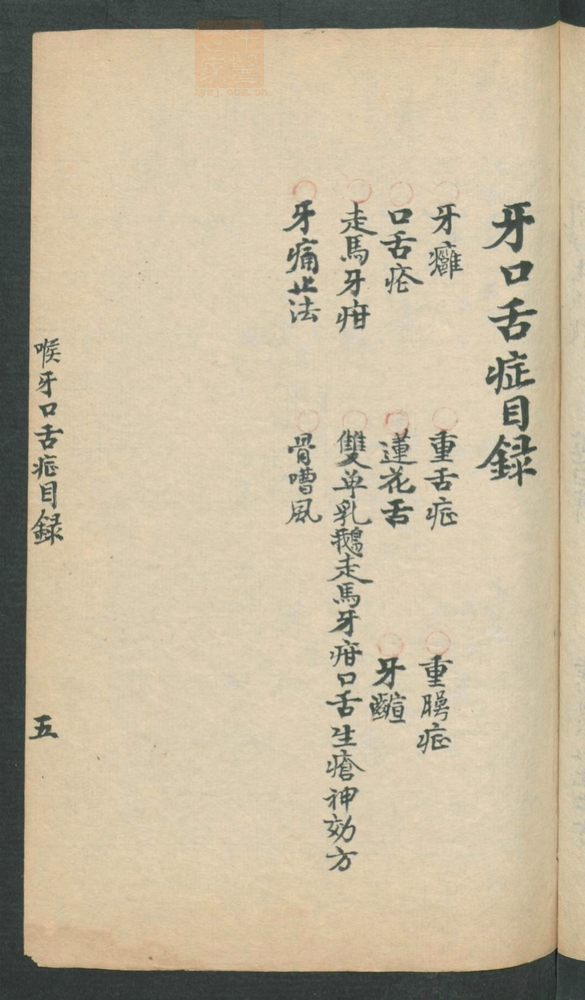 牙口舌症目錄
牙癰 重舌症 重腭症
口舌瘡 蓮花舌 牙齦
走馬牙疳 雙单乳鵝走馬牙疳口舌生瘡神効方
牙痛止法 骨嘈風
喉牙口舌症目錄 五